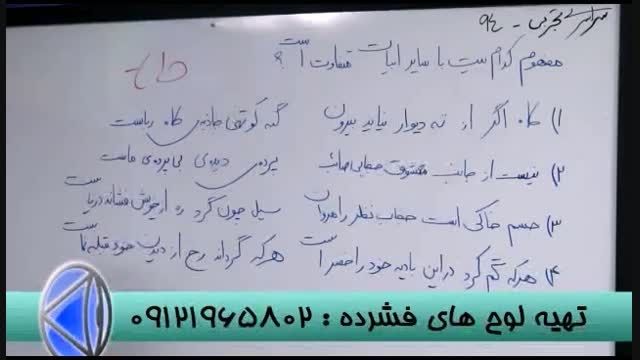 سراسری تجربی - ۹۴
مفهوم کدام بیت با سایر ابیات متفاوت است ؟
۱) کاه اگر از ته دیوار نیاید بیرون گنه کوتهی جاذبه‌ی کاه رباست
۲) نیست از جانب معشوق حجابی صائب پرده‌ی دیده‌ی بی پرده‌ی ماست
۳) جسم خاکی است حجاب نظر راهروان سیل چون گرد ره از خویش فشاند دریاست
۴) هرکه گم کرد در این بادیه خود را خضر است هرکه گرداند رخ از دیدن خود قبله نماست
تهیه لوح های فشرده : ۰۹۱۲۱۹۶۵۸۰۲